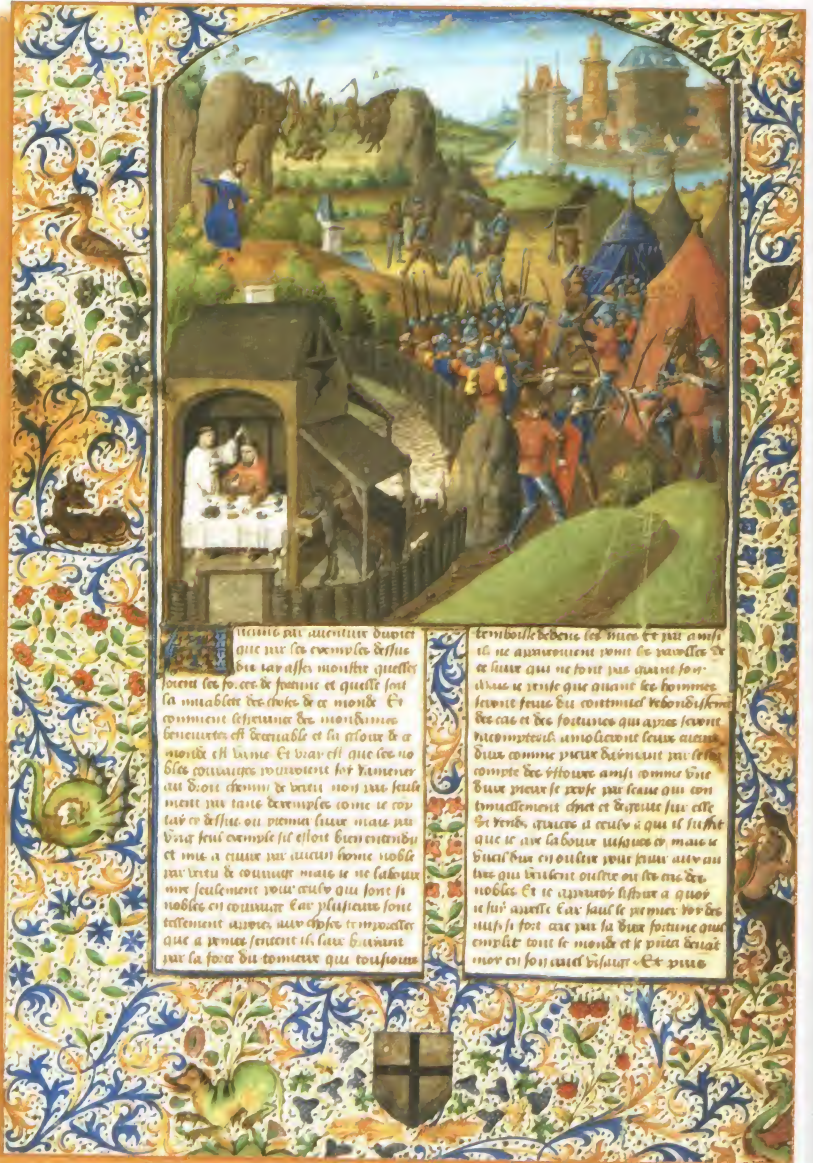 que par les exemples dessus
dis iay asses monstre quelles
soient les forces de fortune et quelle soit
la muablete des choses de ce monde Et
comment lesperance des mondaines
beneurtes est deceuable et la gloire de ce
monde est vaine Et vray est que les no
bles courages pourroient soy ramener
au droit chemin de vertu non pas seule
ment par tans dexemples come ie cop
lay cy dessus ou premier liure mais par
vng seul exemple sil estoit bien entendu
et mis a par aucun home noble
par vertu de courage mais ie ne laboure
mie seulement pour ceulx qui sont si
nobles en courage Car plusieurs sont
tellement aux choses temporelles
que a peines sentent ilz
par la force du tonnerre qui tousiours
dedens les nues Et par ainsi
il ne appartiennent point les parolles de
ce liure qui ne font pas grant son
Mais ie pense que quant les hommes
seront du continuel rebondissement
des cas et des fortunes qui apres seront
ilz amoliront leurs cueurs
durs comme pierre par le
compte des ystoires ainsi comme vne
dure pierre se perse par leaue qui con
tinuellement chiet et degoute sur elle
Si rends graces a ceulx a qui il suffit
que ie aye laboure iusques cy mais ie
pour iouir aux au
tres qui veulent oultre les cas des
nobles Et ie a quoy
ie suis appelle Car saul le premier roy des
iuifs si fort crie par sa dure fortune quil
emplit tout le monde et se
moy en son visaige Et puis